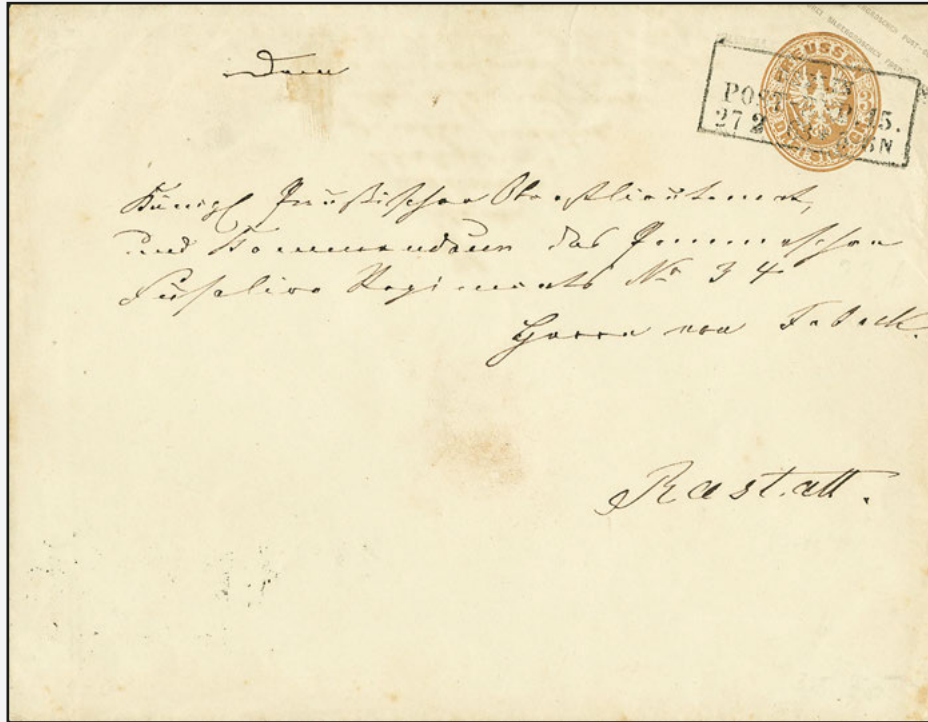 PREUSSEN
DREI SILB. GR.
POST
27 2
Dem
Königl Preußischen Oberstlieutenant,
und Kommandeur des Pommerschen
Füselier Regiments No 34
Herrn von
Rastatt.